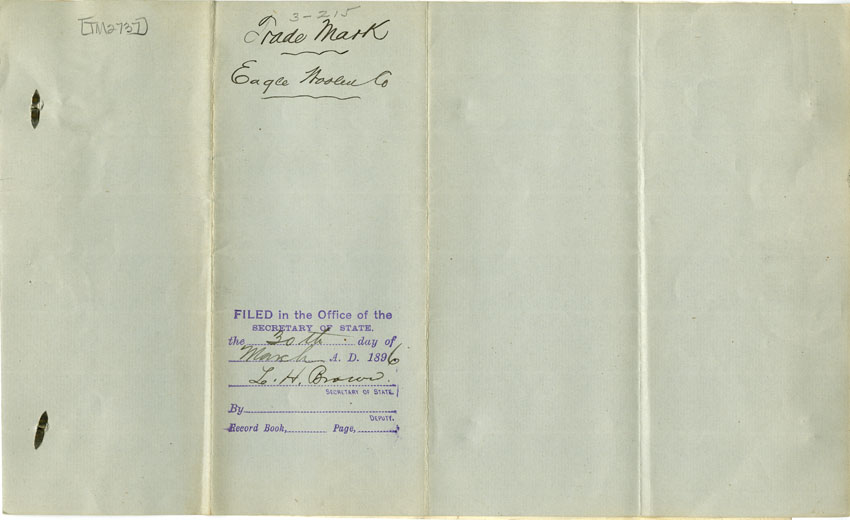 [TM2737]
3-215
Trade Mark
Eagle Woolen Co
FILED in the Office of the
SECRETARY OF STATE.
the 30th day of
March A. D. 1896
L. H. Brown.
SECRETARY OF STATE
By
DEPUTY.
Record Book, Page,